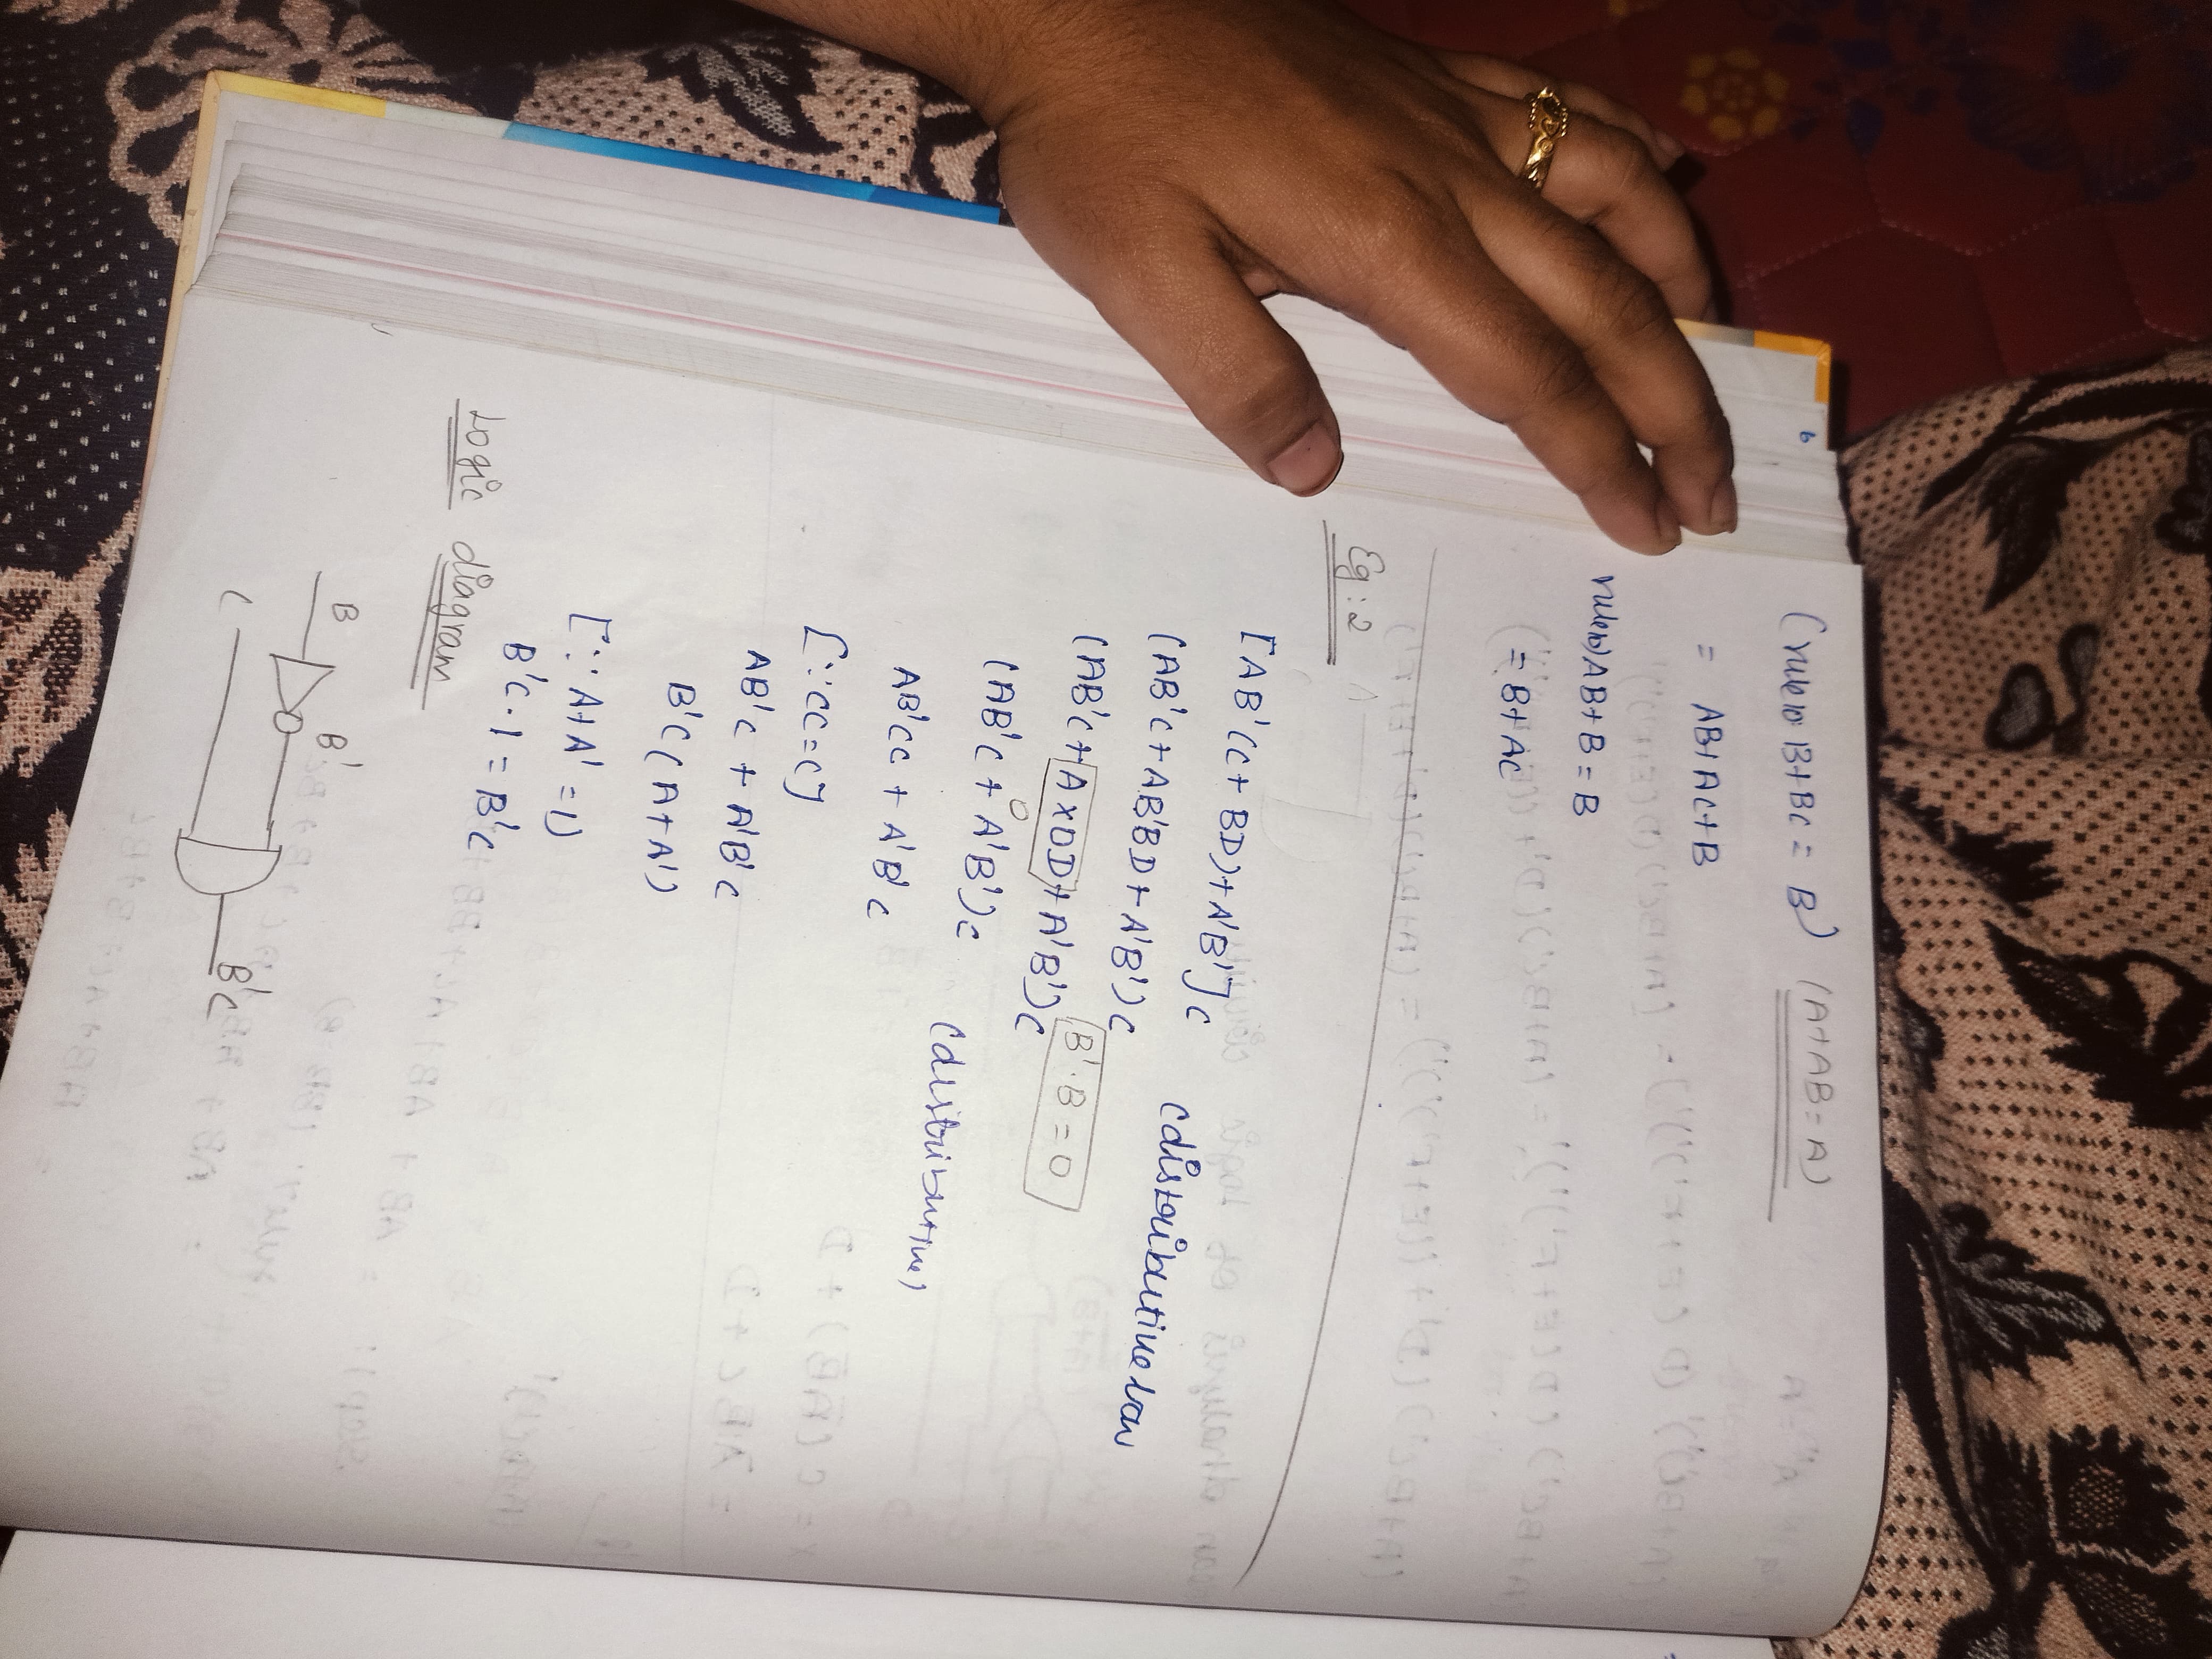 (rule10 B+BC = B) (A+AB=A)
= AB+AC+B
rule10) AB+B = B
(= B+AC
Eg:2
[AB'(C+BD)+A'B']C
(AB'C+AB'BD+A'B')C (distributive law
(AB'C+AX0D+A'B')C B'.B=0
(AB'C+0A'B')C
AB'CC + A'B'C (distributive)
[∵CC=C]
AB'C + A'B'C
B'C(A+A')
[∵A+A'=1)
B'C.1=B'C
Logic diagram
B B'
C B'C